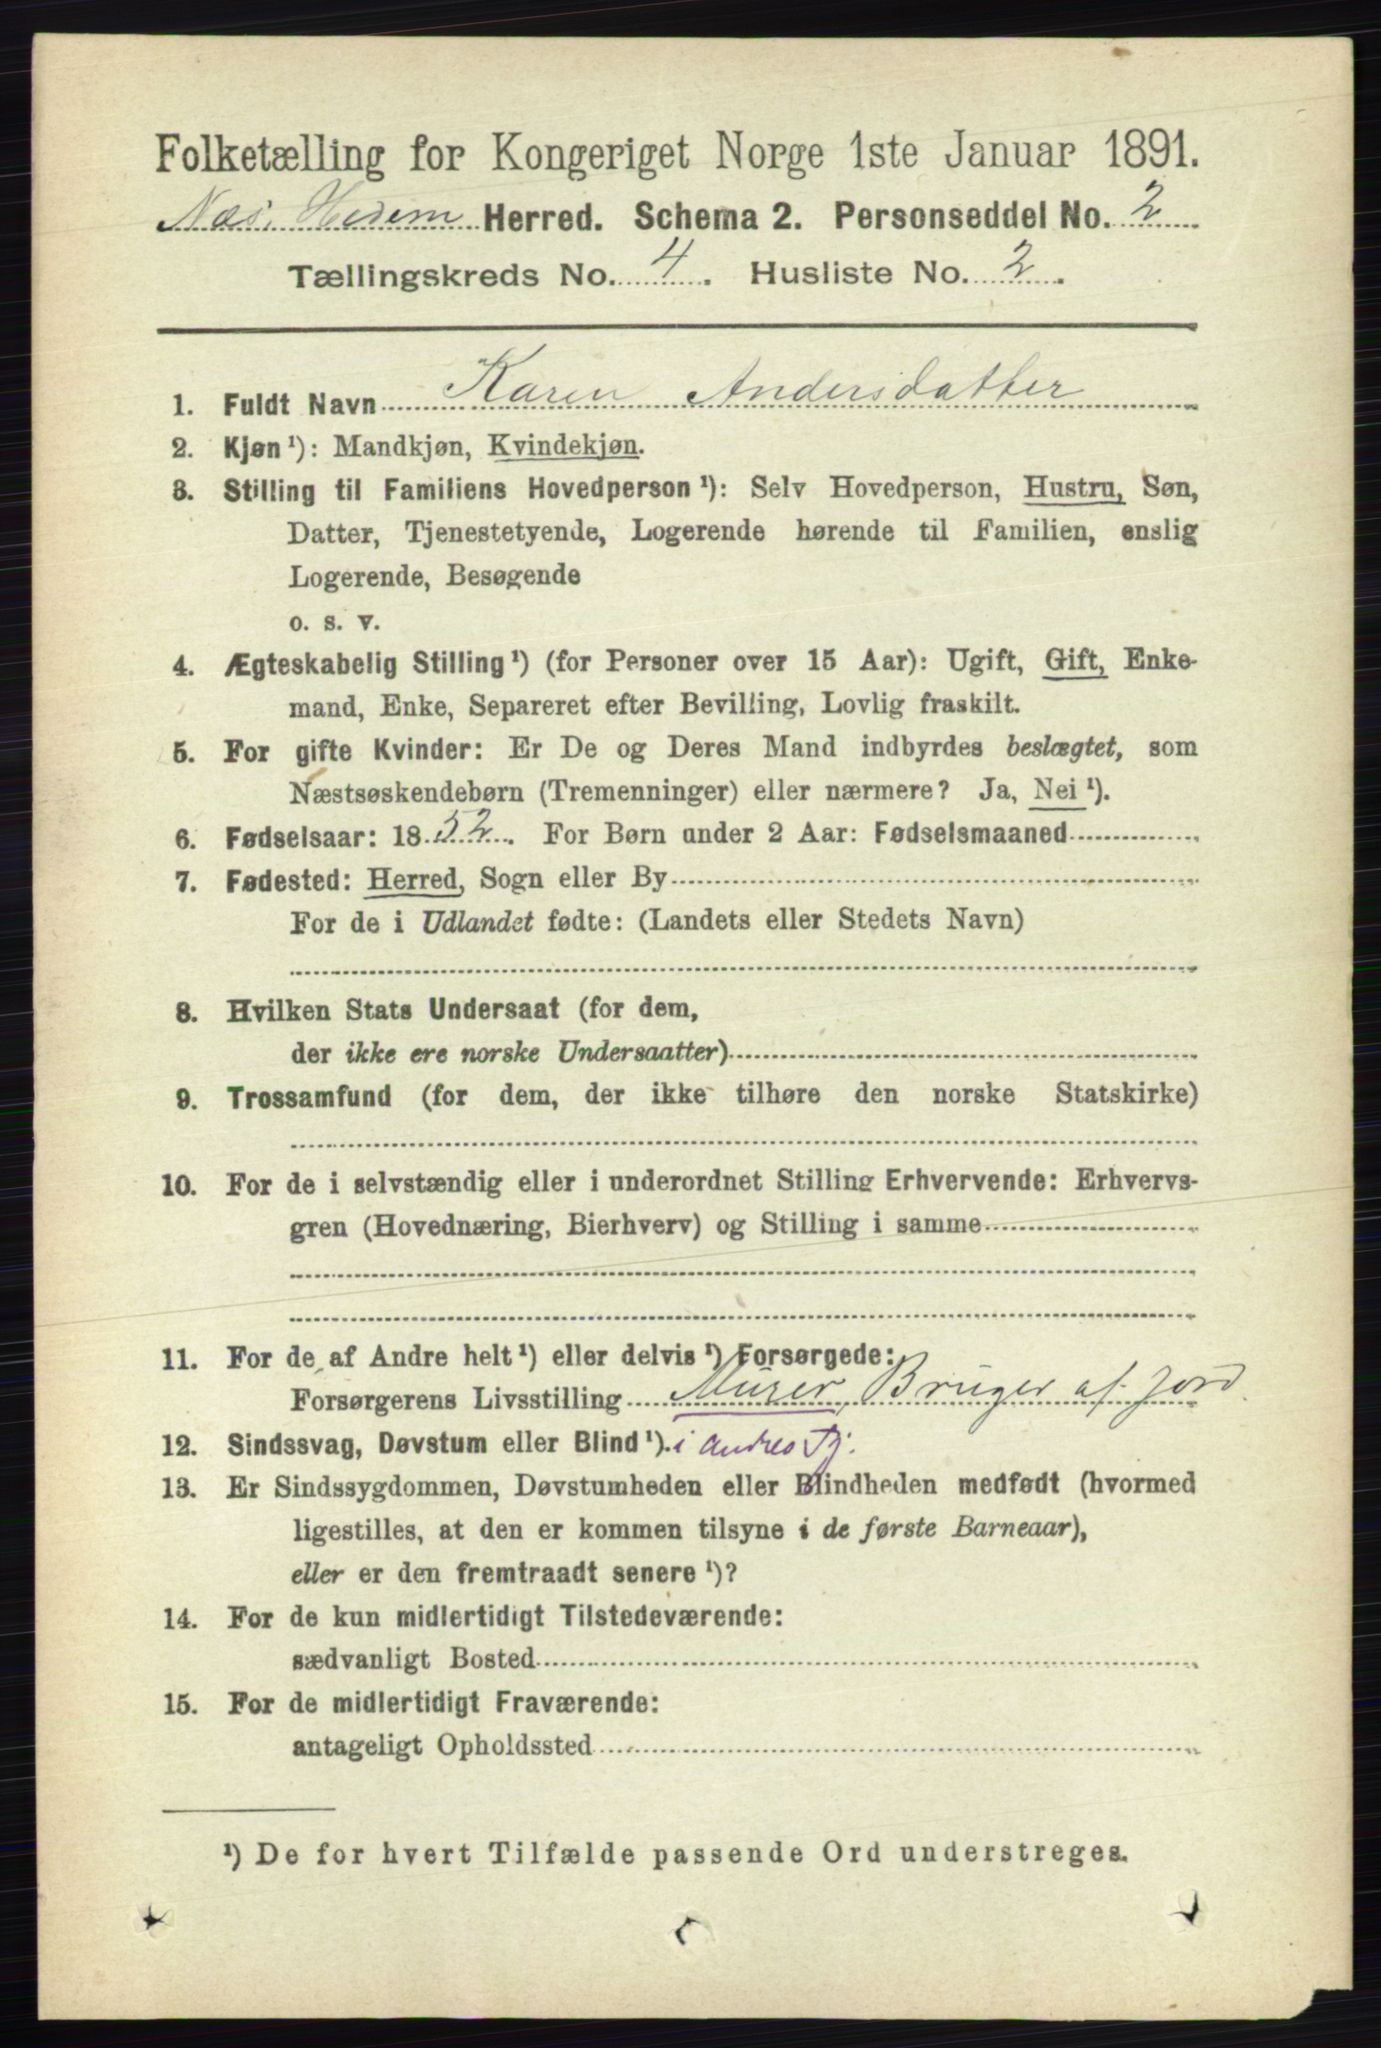 Folketælling for Kongeriget Norge 1ste Januar 1891.
Næs. Hedem Herred. Schema 2. Personseddel No. 2
Tællingskreds No. 4. Husliste No. 2.
1. Fuldt Navn Karen Andersdatter
2. Kjøn ¹): Mandkjøn, Kvindekjøn.
3. Stilling til Familiens Hovedperson ¹): Selv Hovedperson, Hustru, Søn,
Datter, Tjenestetyende, Logerende hørende til Familien, enslig
Logerende, Besøgende
o. s. v.
4. Ægteskabelig Stilling ¹) (for Personer over 15 Aar): Ugift, Gift, Enke-
mand, Enke, Separeret efter Bevilling, Lovlig fraskilt.
5. For gifte Kvinder: Er De og Deres Mand indbyrdes beslægtet, som
Næstsøskendebørn (Tremenninger) eller nærmere? Ja, Nei ¹).
6. Fødselsaar: 1852. For Børn under 2 Aar: Fødselsmaaned
7. Fødested: Herred, Sogn eller By
For de i Udlandet fødte: (Landets eller Stedets Navn)
8. Hvilken Stats Undersaat (for dem,
der ikke ere norske Undersaatter)
9. Trossamfund (for dem, der ikke tilhøre den norske Statskirke)
10. For de i selvstændig eller i underordnet Stilling Erhvervende: Erhvervs-
gren (Hovednæring, Bierhverv) og Stilling i samme
11. For de af Andre helt ¹) eller delvis ¹) Forsørgede:
Forsørgerens Livsstilling Murer, Bruger af Jord
12. Sindssvag, Døvstum eller Blind ¹). i andres Tj.
13. Er Sindssygdommen, Døvstumheden eller Blindheden medfødt (hvormed
ligestilles, at den er kommen tilsyne i de første Barneaar),
eller er den fremtraadt senere ¹)?
14. For de kun midlertidigt Tilstedeværende:
sædvanligt Bosted
15. For de midlertidigt Fraværende:
antageligt Opholdssted
¹) De for hvert Tilfælde passende Ord understreges.